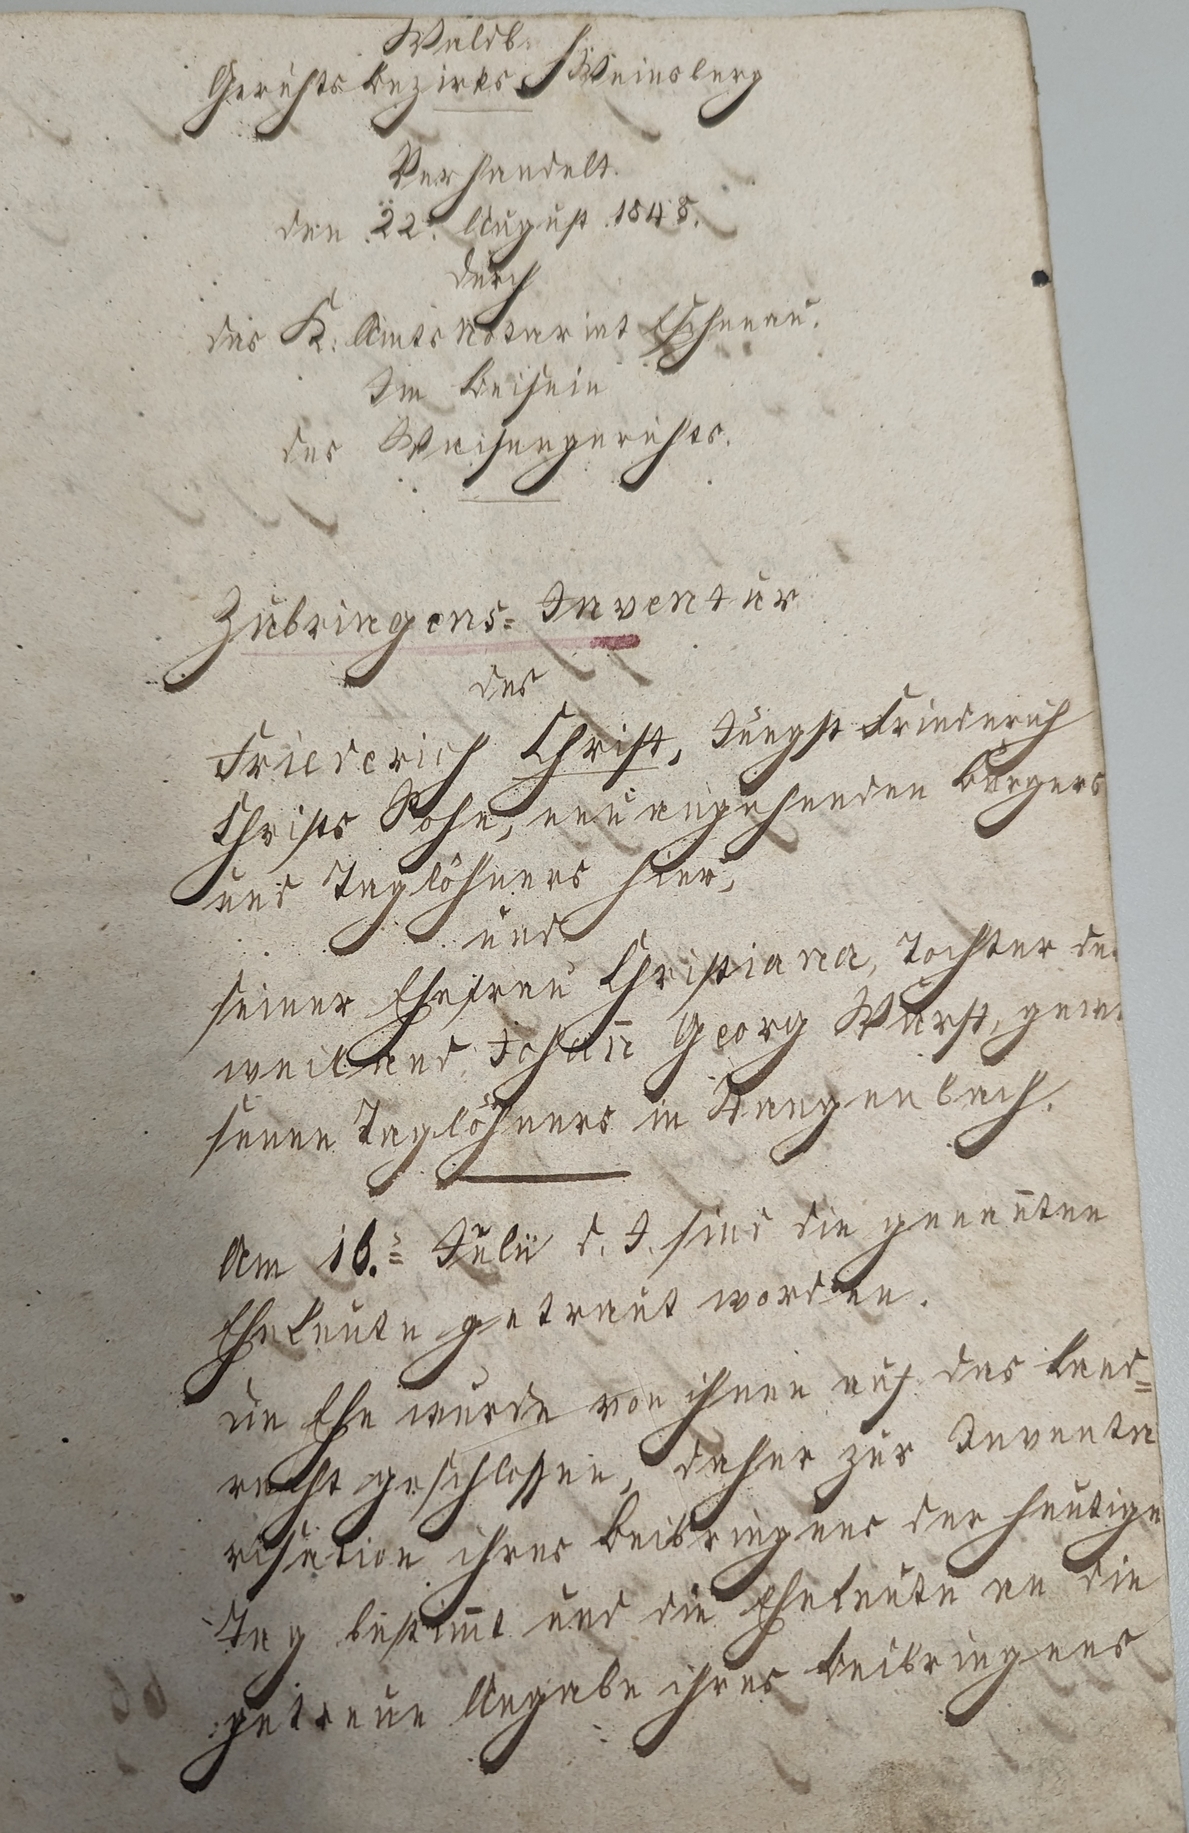 Waldb.
Gerichts Bezirks Weinsberg
Verhandelt.
den 22. August 1848.
durch
das K. Amts Notariat Eschenau.
Im Beisein
des Waisengerichts.
Zubringens= Inventur
des
Friederich Christ, Jüngst Friederich
Christs Sohn, neuangehenden Bürgers
und Taglöhners hier,
und
seiner Ehefrau Christiana, Tochter de
weiland Johan̅ Georg Wurst, gewe
senen Taglöhners in Wangenbach.
Am 16.= Juli d. J. sind die genan̅ten
Eheleute getraut worden.
die Ehe wurde von ihnen auf das Land=
recht geschlossen, daher zur Inventa
risation ihres Beibringens der heutige
Tag bestim̅t und die Eheleute an die
getreue Angabe ihres Beibringens